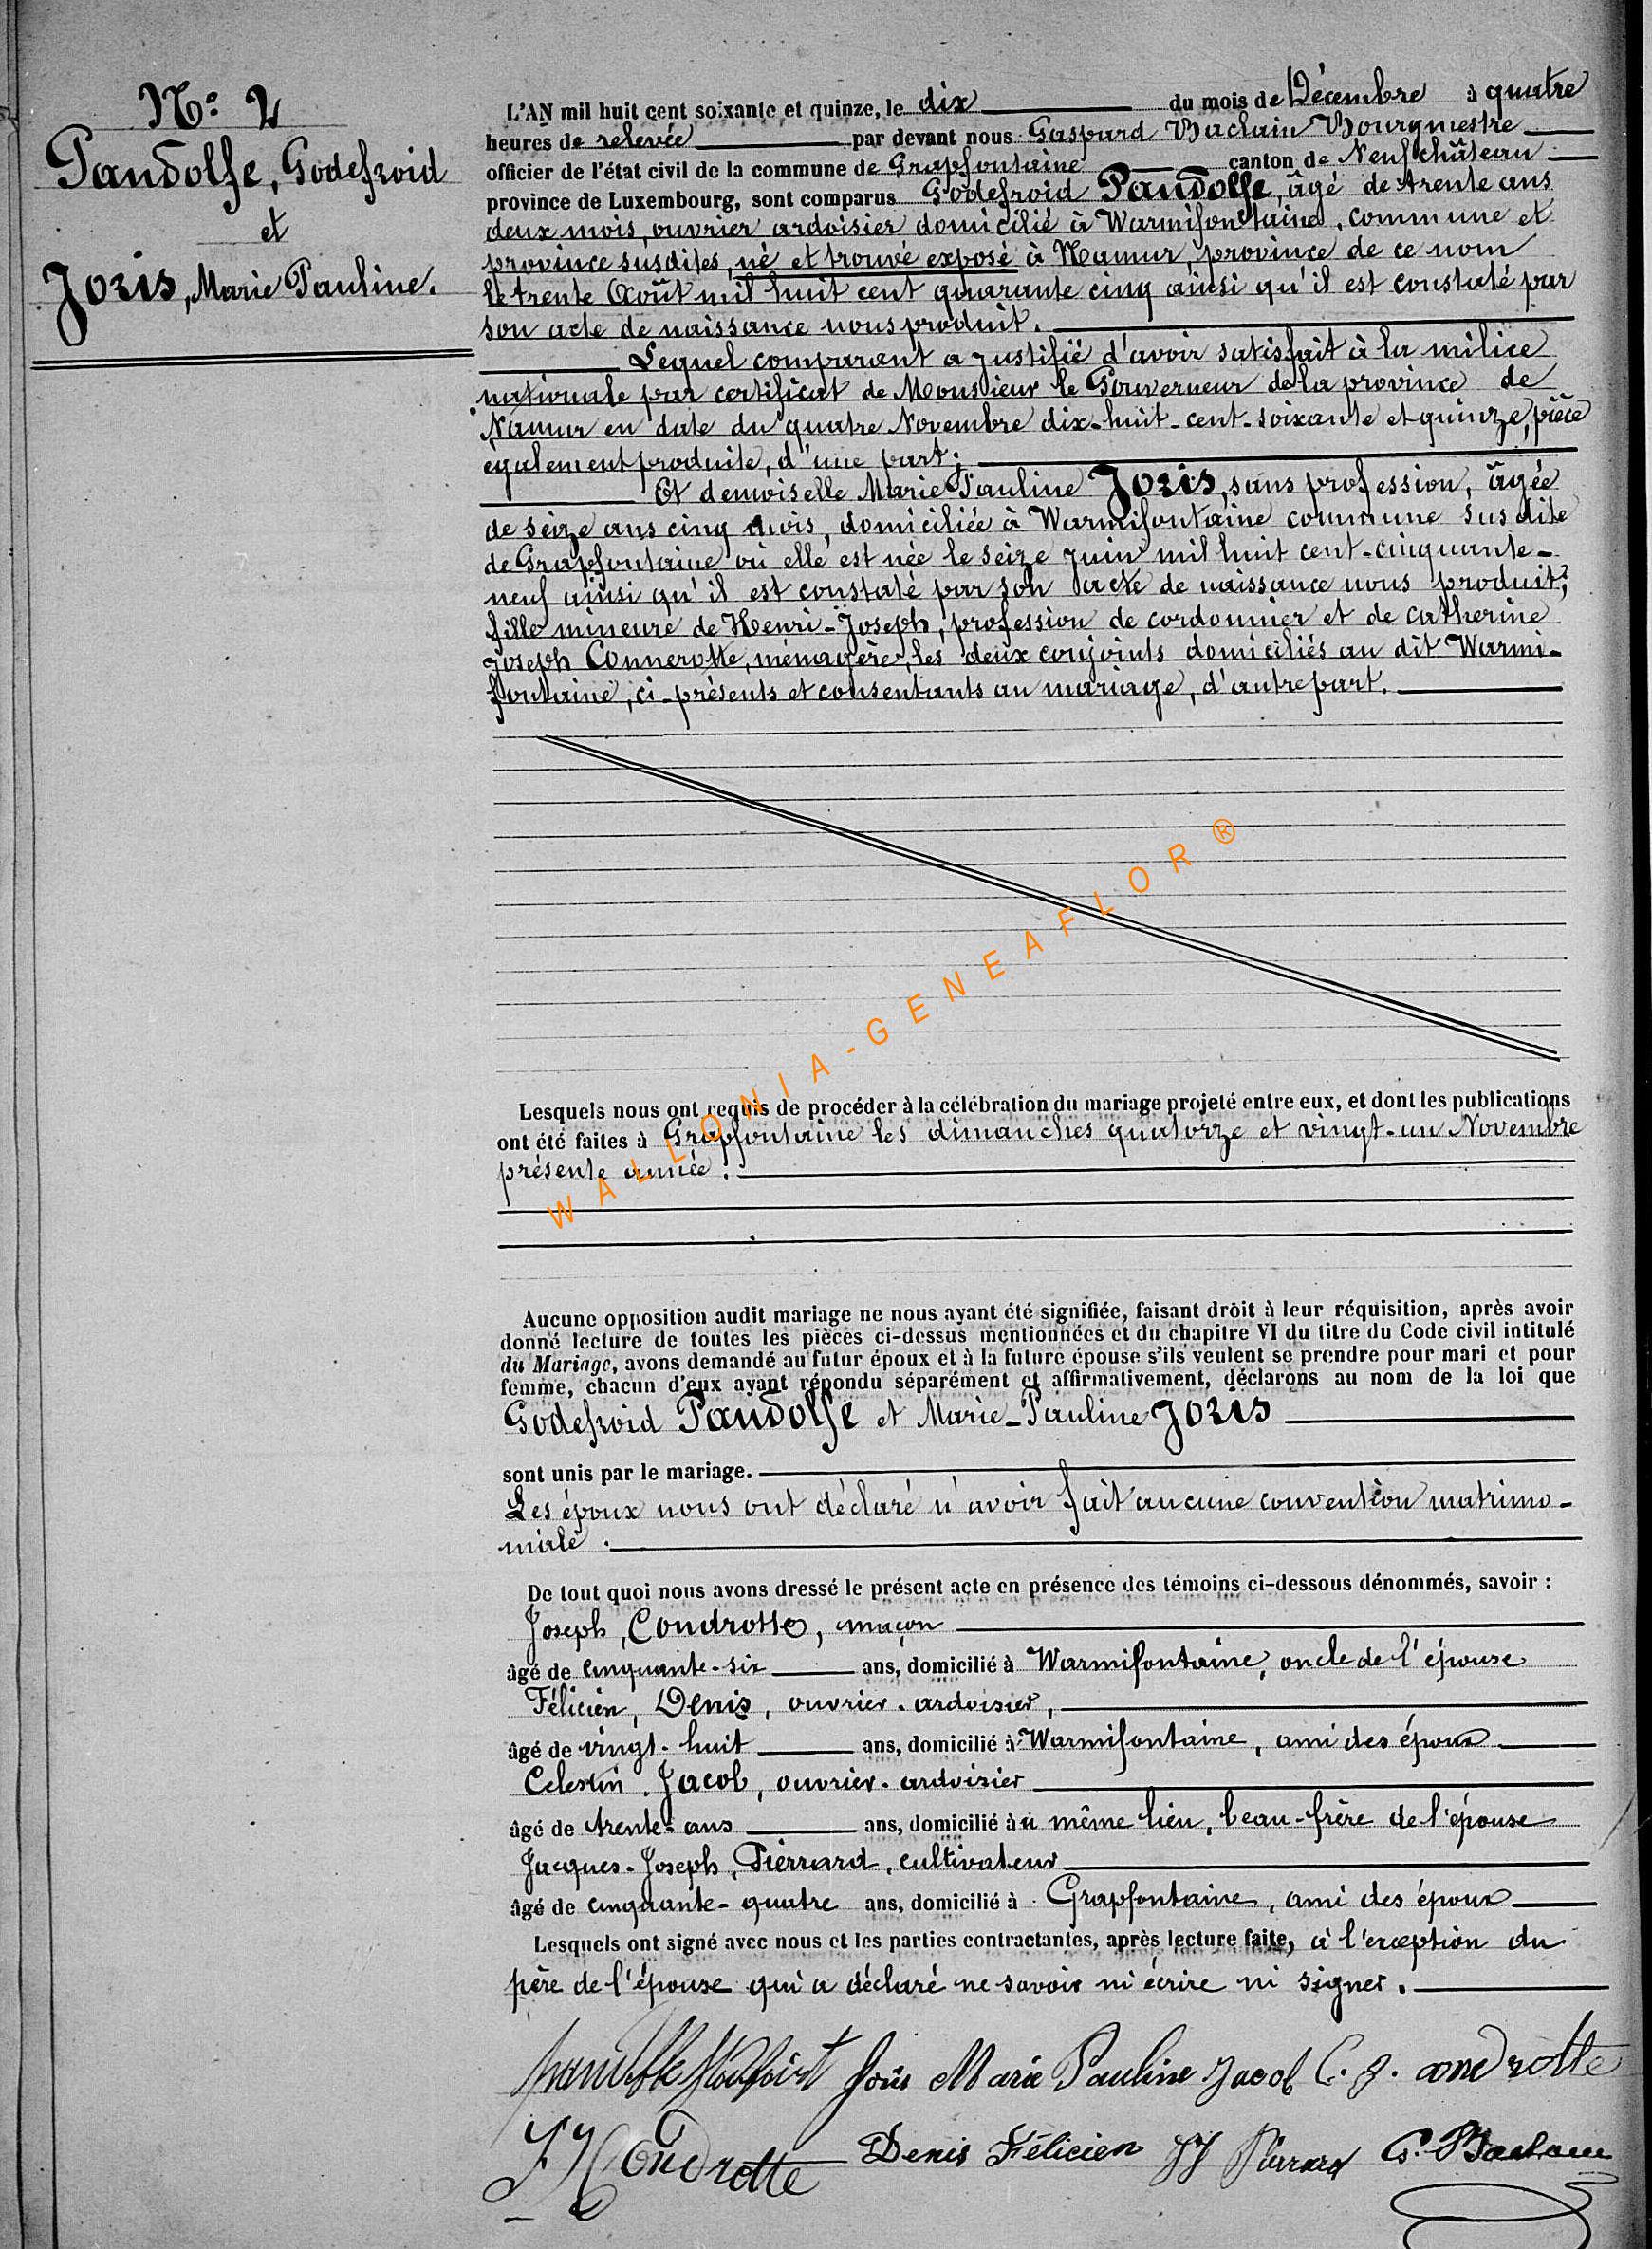 N° 2
Pandolfe, Godefroid
et
Joris, Marie Pauline.
L'AN mil huit cent soixante et quinze, le dix du mois de Décembre à quatre
heures de relevée par devant nous Gaspard Baclain Bourgmestre
officier de l'état civil de la commune de Grapfontaine canton de Neufchâteau
province de Luxembourg, sont comparus Godefroid Pandolfe, âgé de trente ans
deux mois, ouvrier ardoisier domicilié à Warmifontaine, commune et
province susdites, né et trouvé exposé à Namur, province de ce nom
le trente Août mil huit cent quarante cinq ainsi qu'il est constaté par
son acte de naissance nous produit.
Lequel comparant a justifié d'avoir satisfait à la milice
nationale par certificat de Monsieur le Gouverneur de la province de
Namur en date du quatre Novembre dix-huit-cent-soixante et quinze, pièce
également produite, d'une part;
Et demoiselle Marie Pauline Joris, sans profession, âgée
de seize ans cinq mois, domiciliée à Warmifontaine commune susdite
de Grapfontaine où elle est née le seize Juin mil huit cent-cinquante-
neuf ainsi qu'il est constaté par son acte de naissance nous produit;
fille mineure de Henri-Joseph, profession de cordonnier et de Catherine
Joseph Connerotte, ménagère, les deux conjoints domiciliés au dit Warmi-
fontaine, ci-présents et consentants au mariage, d'autre part.
WALLONIA-GENEAFLOR ®
Lesquels nous ont requis de procéder à la célébration du mariage projeté entre eux, et dont les publications
ont été faites à Grapfontaine les dimanches quatorze et vingt-un Novembre
présente année:
Aucune opposition audit mariage ne nous ayant été signifiée, faisant droit à leur réquisition, après avoir
donné lecture de toutes les pièces ci-dessus mentionnées et du chapitre VI du titre du Code civil intitulé
du Mariage, avons demandé au futur époux et à la future épouse s'ils veulent se prendre pour mari et pour
femme, chacun d'eux ayant répondu séparément et affirmativement, déclarons au nom de la loi que
Godefroid Pandolfe et Marie-Pauline Joris
sont unis par le mariage.
Les époux nous ont déclaré n'avoir fait aucune convention matrimo-
niale.
De tout quoi nous avons dressé le présent acte en présence des témoins ci-dessous dénommés, savoir :
Joseph, Condrotte, maçon
âgé de cinquante-six ans, domicilié à Warmifontaine, oncle de l'épouse
Félicien, Denis, ouvrier-ardoisier,
âgé de vingt-huit ans, domicilié à Warmifontaine, ami des époux
Celestin, Jacob, ouvrier-ardoisier
âgé de trente-ans ans, domicilié àu même lieu, beau-frère de l'épouse
Jacques-Joseph, Pierrard, cultivateur
âgé de cinquante-quatre ans, domicilié à Grapfontaine, ami des époux
Lesquels ont signé avec nous et les parties contractantes, après lecture faite, à l'exception du
père de l'épouse qui a déclaré ne savoir ni écrire ni signer.
Joris Marie Pauline Jacob C. J. condrotte
Condrotte Denis Félicien JJ Pierrard G. Baclain